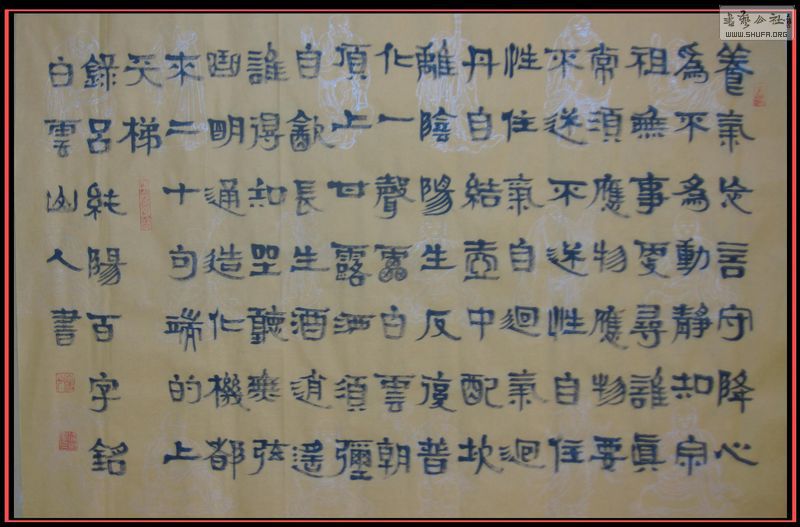 養氣忘言守降心
為不為動靜知宗
祖無事更尋誰真
常須應物應物要
不迷不迷性自住
性住氣自迴氣迴
丹自結壺中配坎
離陰陽生反復普
化一聲雷白雲朝
頂上甘露洒須彌
自㱃長生酒逍遥
誰得知坐聽無弦
曲明通造化機都
來二十句端的上
天梯
錄呂純陽百字銘
白雲山人書
書藝公社
WWW.SHUFA.ORG